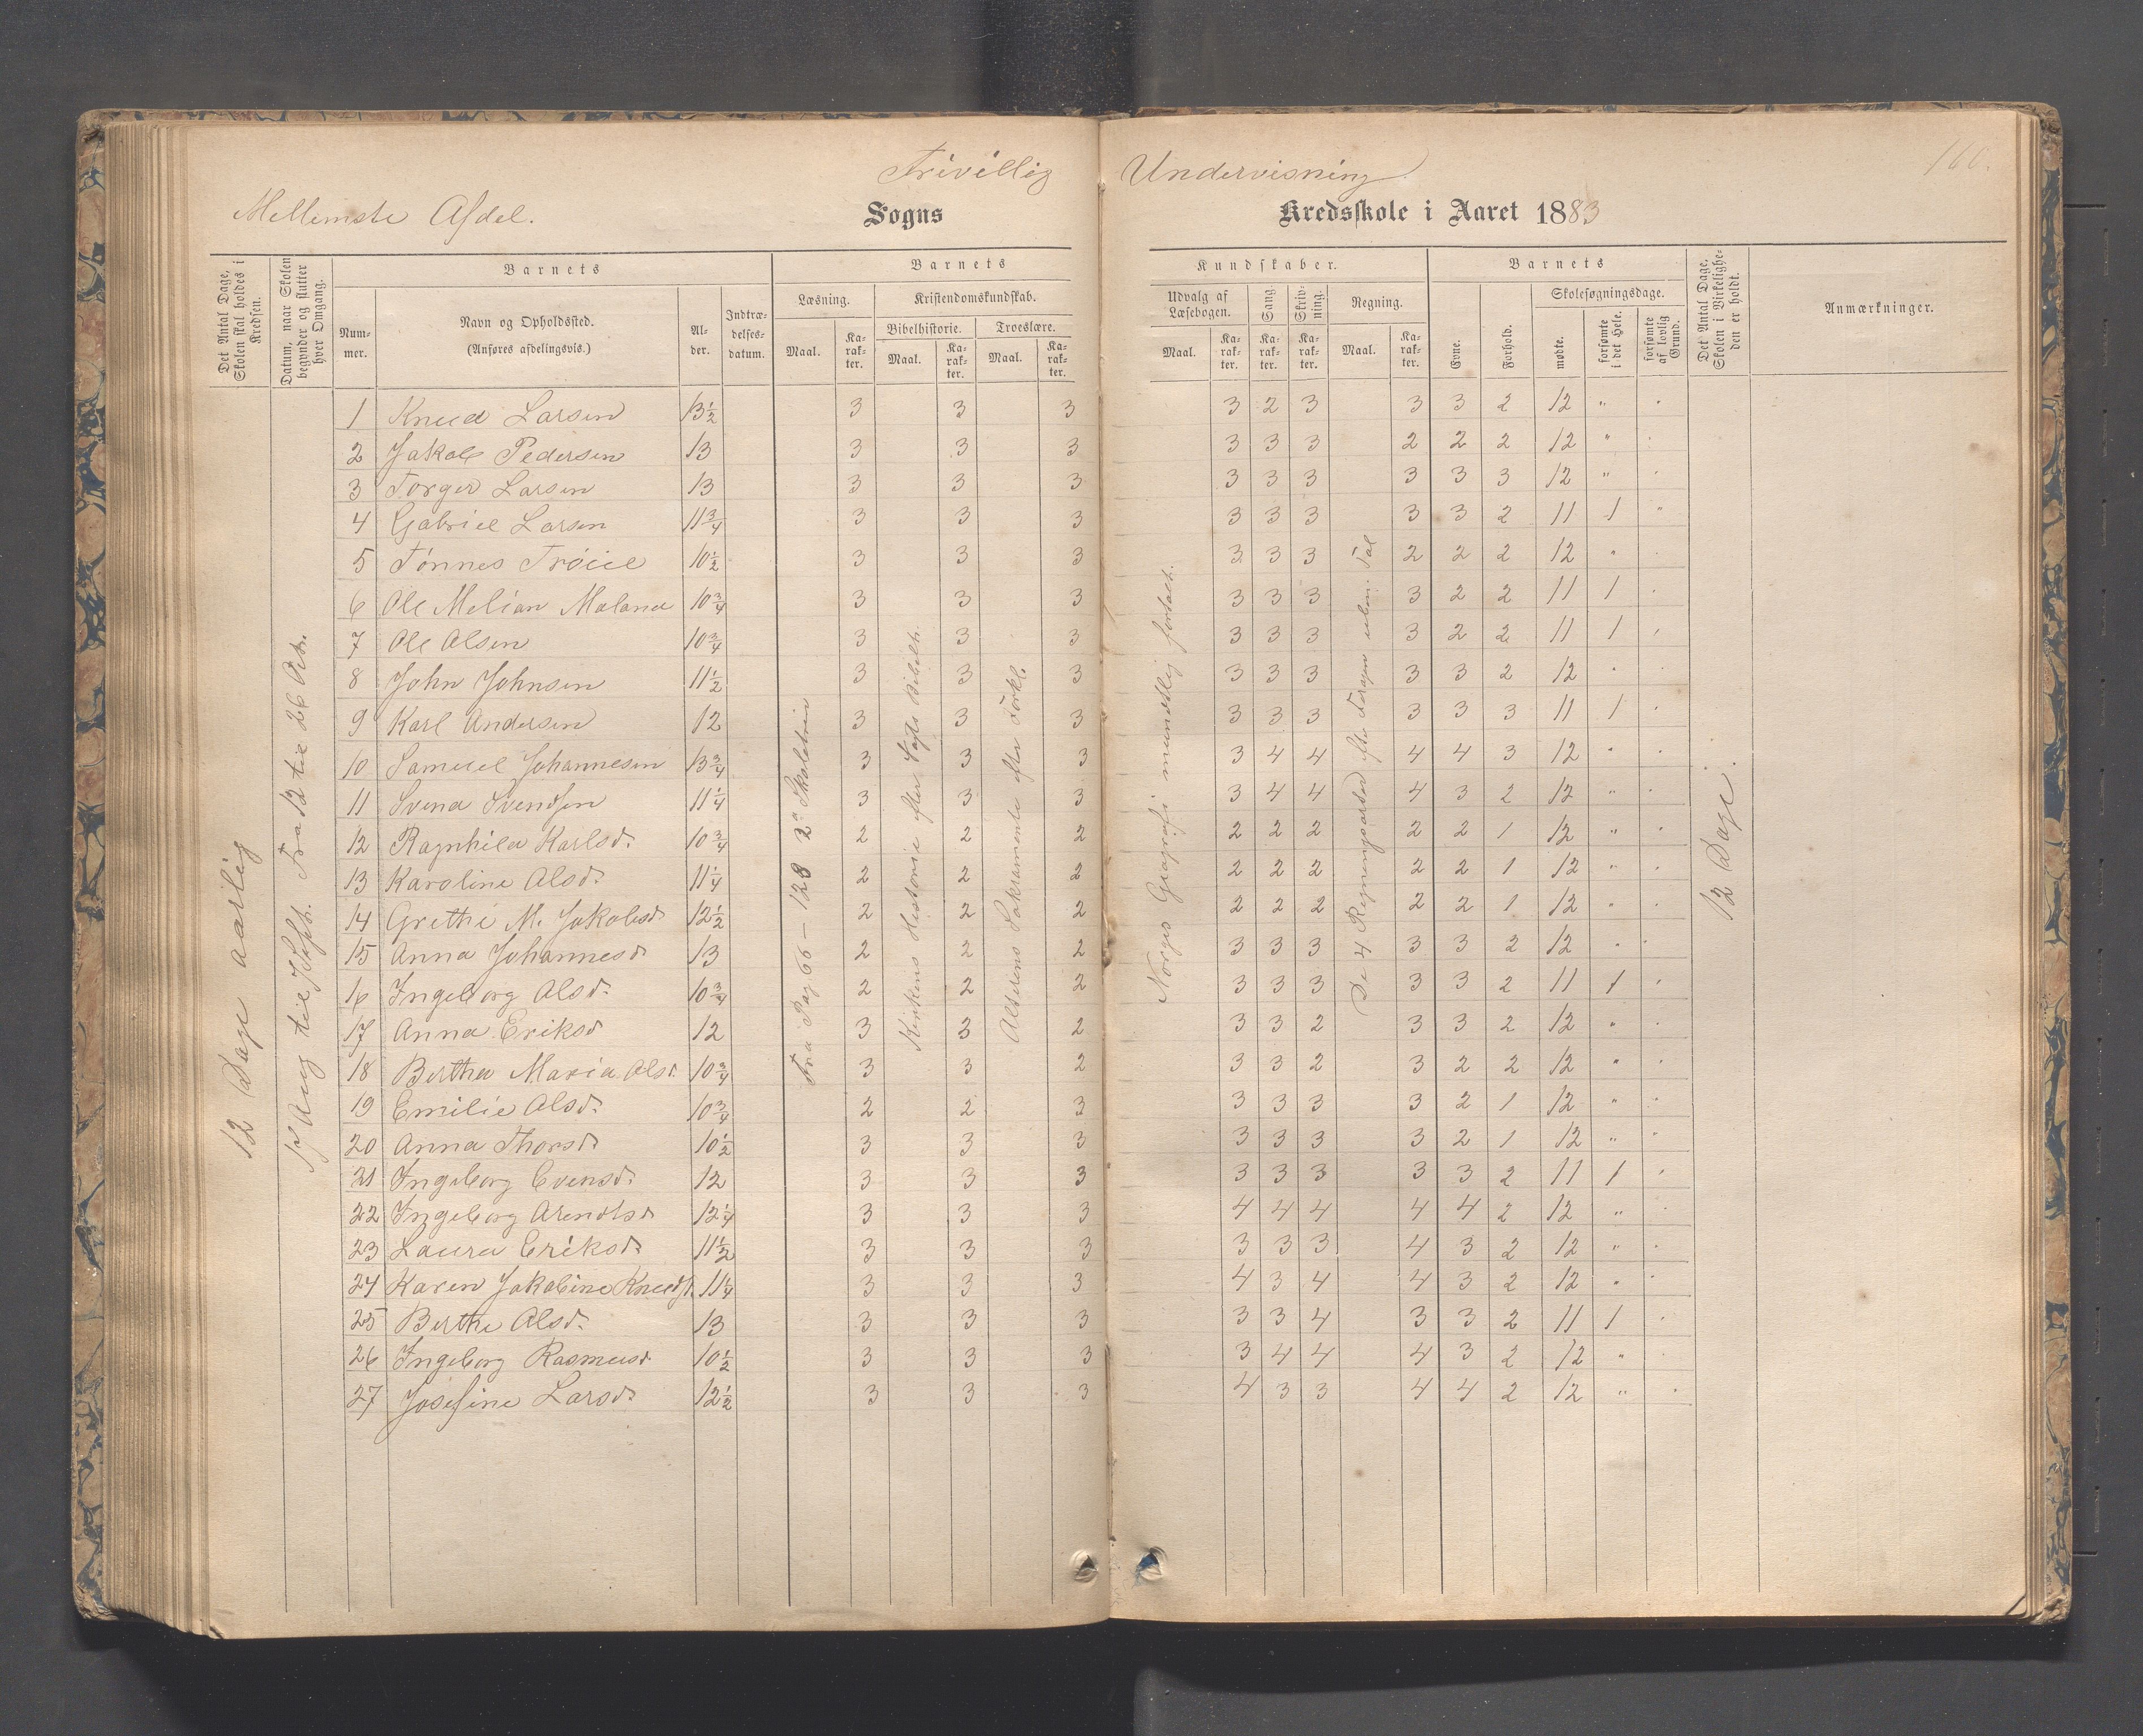 Frivillig Undervisning
166.
Mellemste Afdel.
Sogns Kredsskole i Aaret 1883
Det Antal Dage, Skolen skal holdes i Kredsen.
Datum, naar Skolen begynder og slutter hver Omgang.
Barnets
Nummer.
Navn og Opholdssted.
(Anføres afdelingsvis.)
Alder.
Indtrædelsesdatum.
Barnets Kundskaber.
Læsning.
Maal.
Karakter.
Kristendomskundskab.
Bibelhistorie.
Maal.
Karakter.
Troeslære.
Maal.
Karakter.
Udvalg af Læsebogen.
Maal.
Karakter.
Sang.
Karakter.
Skrivning.
Karakter.
Regning.
Maal.
Karakter.
Barnets
Evne.
Forhold.
Skolesøgningsdage.
mødte.
forsømte i det Hele.
forsømte af lovlig Grund.
Det Antal Dage, Skolen i Virkeligheden er holdt.
Anmærkninger.
12 Dage aarlig
Fra 12 til 26 Oktr.
Fra Pag 66 - 128 2n Skoletrin
Historie efter Vogts Bibelh.
Alterens Sakramente efter Forkl.
Norges Geografi mundtlig fortalt.
De 4 Regningsarter
12 Dage.
1 Knud Larsen 13½ 3 3 3 3 2 3 3 3 2 12 " "
2 Jakob Pedersen 13 3 3 3 3 3 3 2 2 2 12 " "
3 Torger Larsen 13 3 3 3 3 3 3 3 3 3 12 " "
4 Gabriel Larsen 11¾ 3 3 3 3 3 3 3 3 2 11 1 "
5 Tønnes Trøiel 10½ 3 3 3 3 3 3 2 2 2 12 " "
6 Ole Melian Maland 10¾ 3 3 3 3 3 3 3 2 2 11 1 "
7 Ole Olsen 10¾ 3 3 3 3 3 3 3 2 2 11 1 "
8 John Johnsen 11½ 3 3 3 3 3 3 3 3 2 12 " "
9 Karl Andersen 12 3 3 3 3 3 3 3 3 3 11 1 "
10 Samuel Johannesen 13¾ 3 3 3 3 4 4 4 4 3 12 " "
11 Svend Svendsen 11¼ 3 3 3 3 4 4 4 3 2 12 " "
12 Ragnhild Karlsd. 10¾ 2 2 2 2 2 2 2 2 1 12 " "
13 Karoline Olsd. 11¼ 2 2 2 2 2 2 2 2 1 12 " "
14 Grethe M. Jakobsd. 12½ 2 2 2 2 2 2 2 2 1 12 " "
15 Anna Johannesd. 13 2 2 2 3 3 3 3 3 2 12 " "
16 Ingeborg Olsd. 10¾ 2 2 2 3 3 3 3 3 2 11 1 "
17 Anna Eriksd. 12 3 3 2 3 3 2 3 3 2 12 " "
18 Bertha Maria Olsd. 10¾ 3 3 2 3 3 2 3 2 2 12 " "
19 Emilie Olsd. 10¾ 2 2 3 3 3 3 3 2 1 12 " "
20 Anna Thorsd. 10½ 3 3 3 3 3 3 3 2 1 12 " "
21 Ingeborg Evensd. 12 3 3 3 3 3 3 3 3 2 11 1 "
22 Ingeborg Arendtsd. 12¼ 3 3 3 4 4 4 4 4 2 12 " "
23 Laura Eriksd. 11½ 3 3 3 3 3 3 4 3 2 12 " "
24 Karen Jakobine Knudsd. 11¼ 3 3 3 4 3 4 4 3 2 12 " "
25 Berthe Olsd. 13 3 3 3 3 3 4 3 3 2 11 1 "
26 Ingeborg Rasmusd. 10½ 3 3 3 3 4 4 4 3 2 12 " "
27 Josefine Larsd. 12½ 3 3 3 4 3 3 4 4 2 12 " "